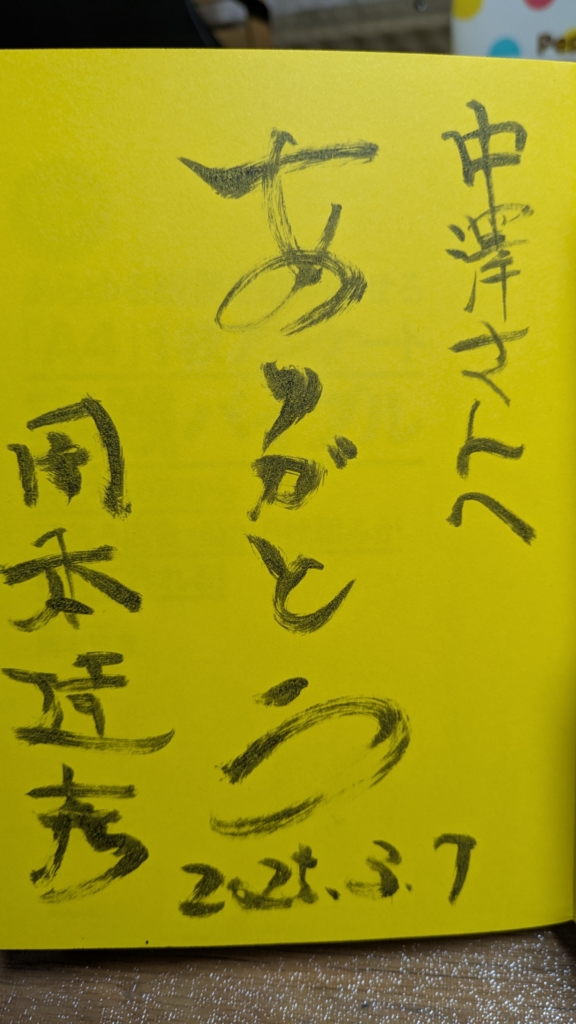 中澤さんへ
ありがとう
2025.3.7